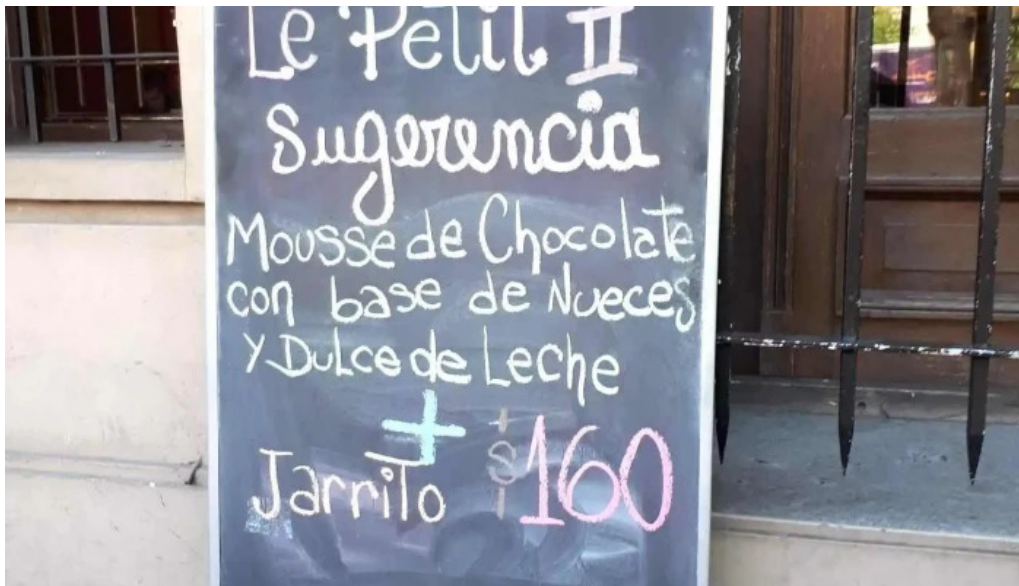 Le Petit II
Sugerencia
Mousse de Chocolate
con base de Nueces
y Dulce de Leche
+
Jarrito $160